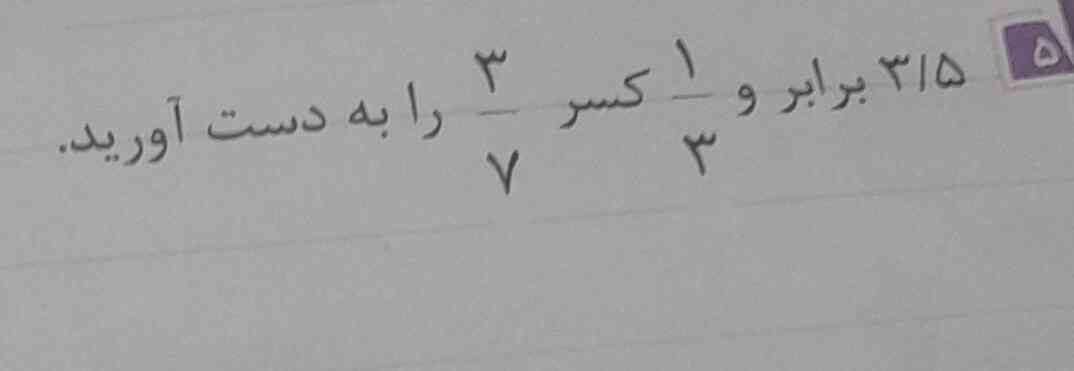 ۵ ۳/۵ برابر و ۱/۳ کسر ۳/۷ را به دست آورید.